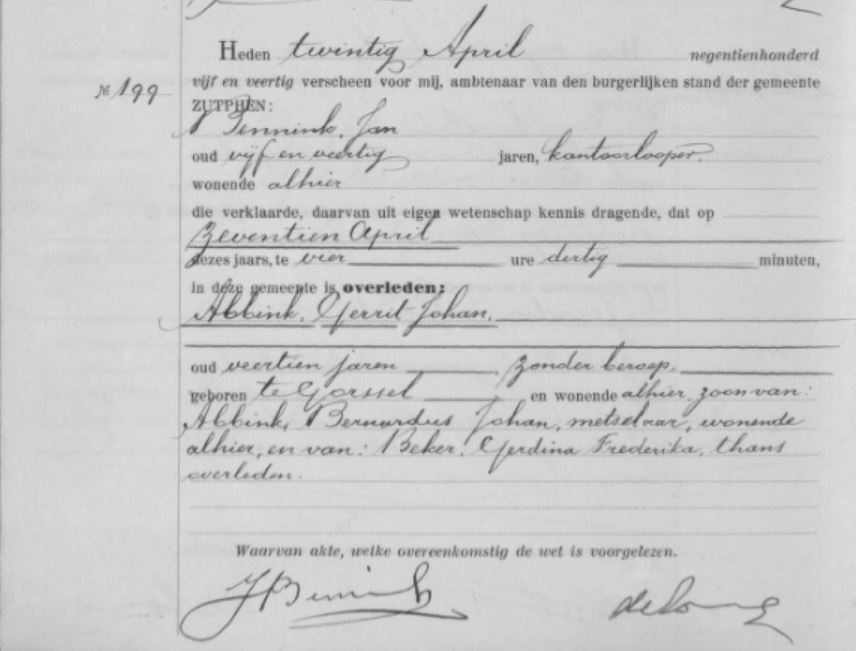 Heden twintig April negentienhonderd
№ 199
vijf en veertig verscheen voor mij, ambtenaar van den burgerlijken stand der gemeente
ZUTPHEN:
Bennink, Jan
oud vijf en veertig jaren, kantoorlooper.
wonende alhier
die verklaarde, daarvan uit eigen wetenschap kennis dragende, dat op
zeventien April
dezes jaars, te vier ure dertig minuten,
in deze gemeente is overleden:
Abbink, Gerrit Johan,
oud veertien jaren, zonder beroep,
geboren te Gorssel en wonende alhier, zoon van:
Abbink, Bernardus Johan, metselaar, wonende
alhier, en van: Beker, Gerdina Frederika, thans
overleden.
Waarvan akte, welke overeenkomstig de wet is voorgelezen.
JBennink